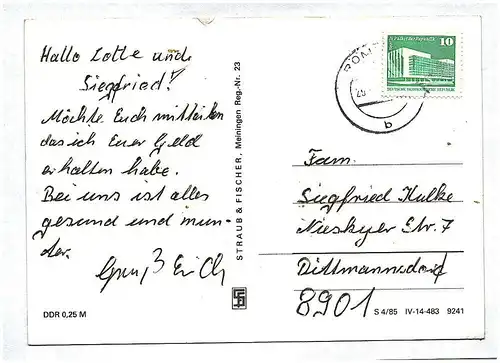 Hallo Lotte und
Siegfried!
Möchte Euch mitteilen
das ich Euer Geld
erhalten habe.
Bei uns ist alles
gesund und mun-
der.
Gruß Erich
DDR 0,25 M
STRAUB & FISCHER, Meiningen Reg.-Nr. 23
10
DEUTSCHE DEMOKRATISCHE REPUBLIK
b
Fam.
Siegfried Kulke
Nieskyer Str. 7
Dittmannsdorf
8901
S 4/85 IV-14-483 9241